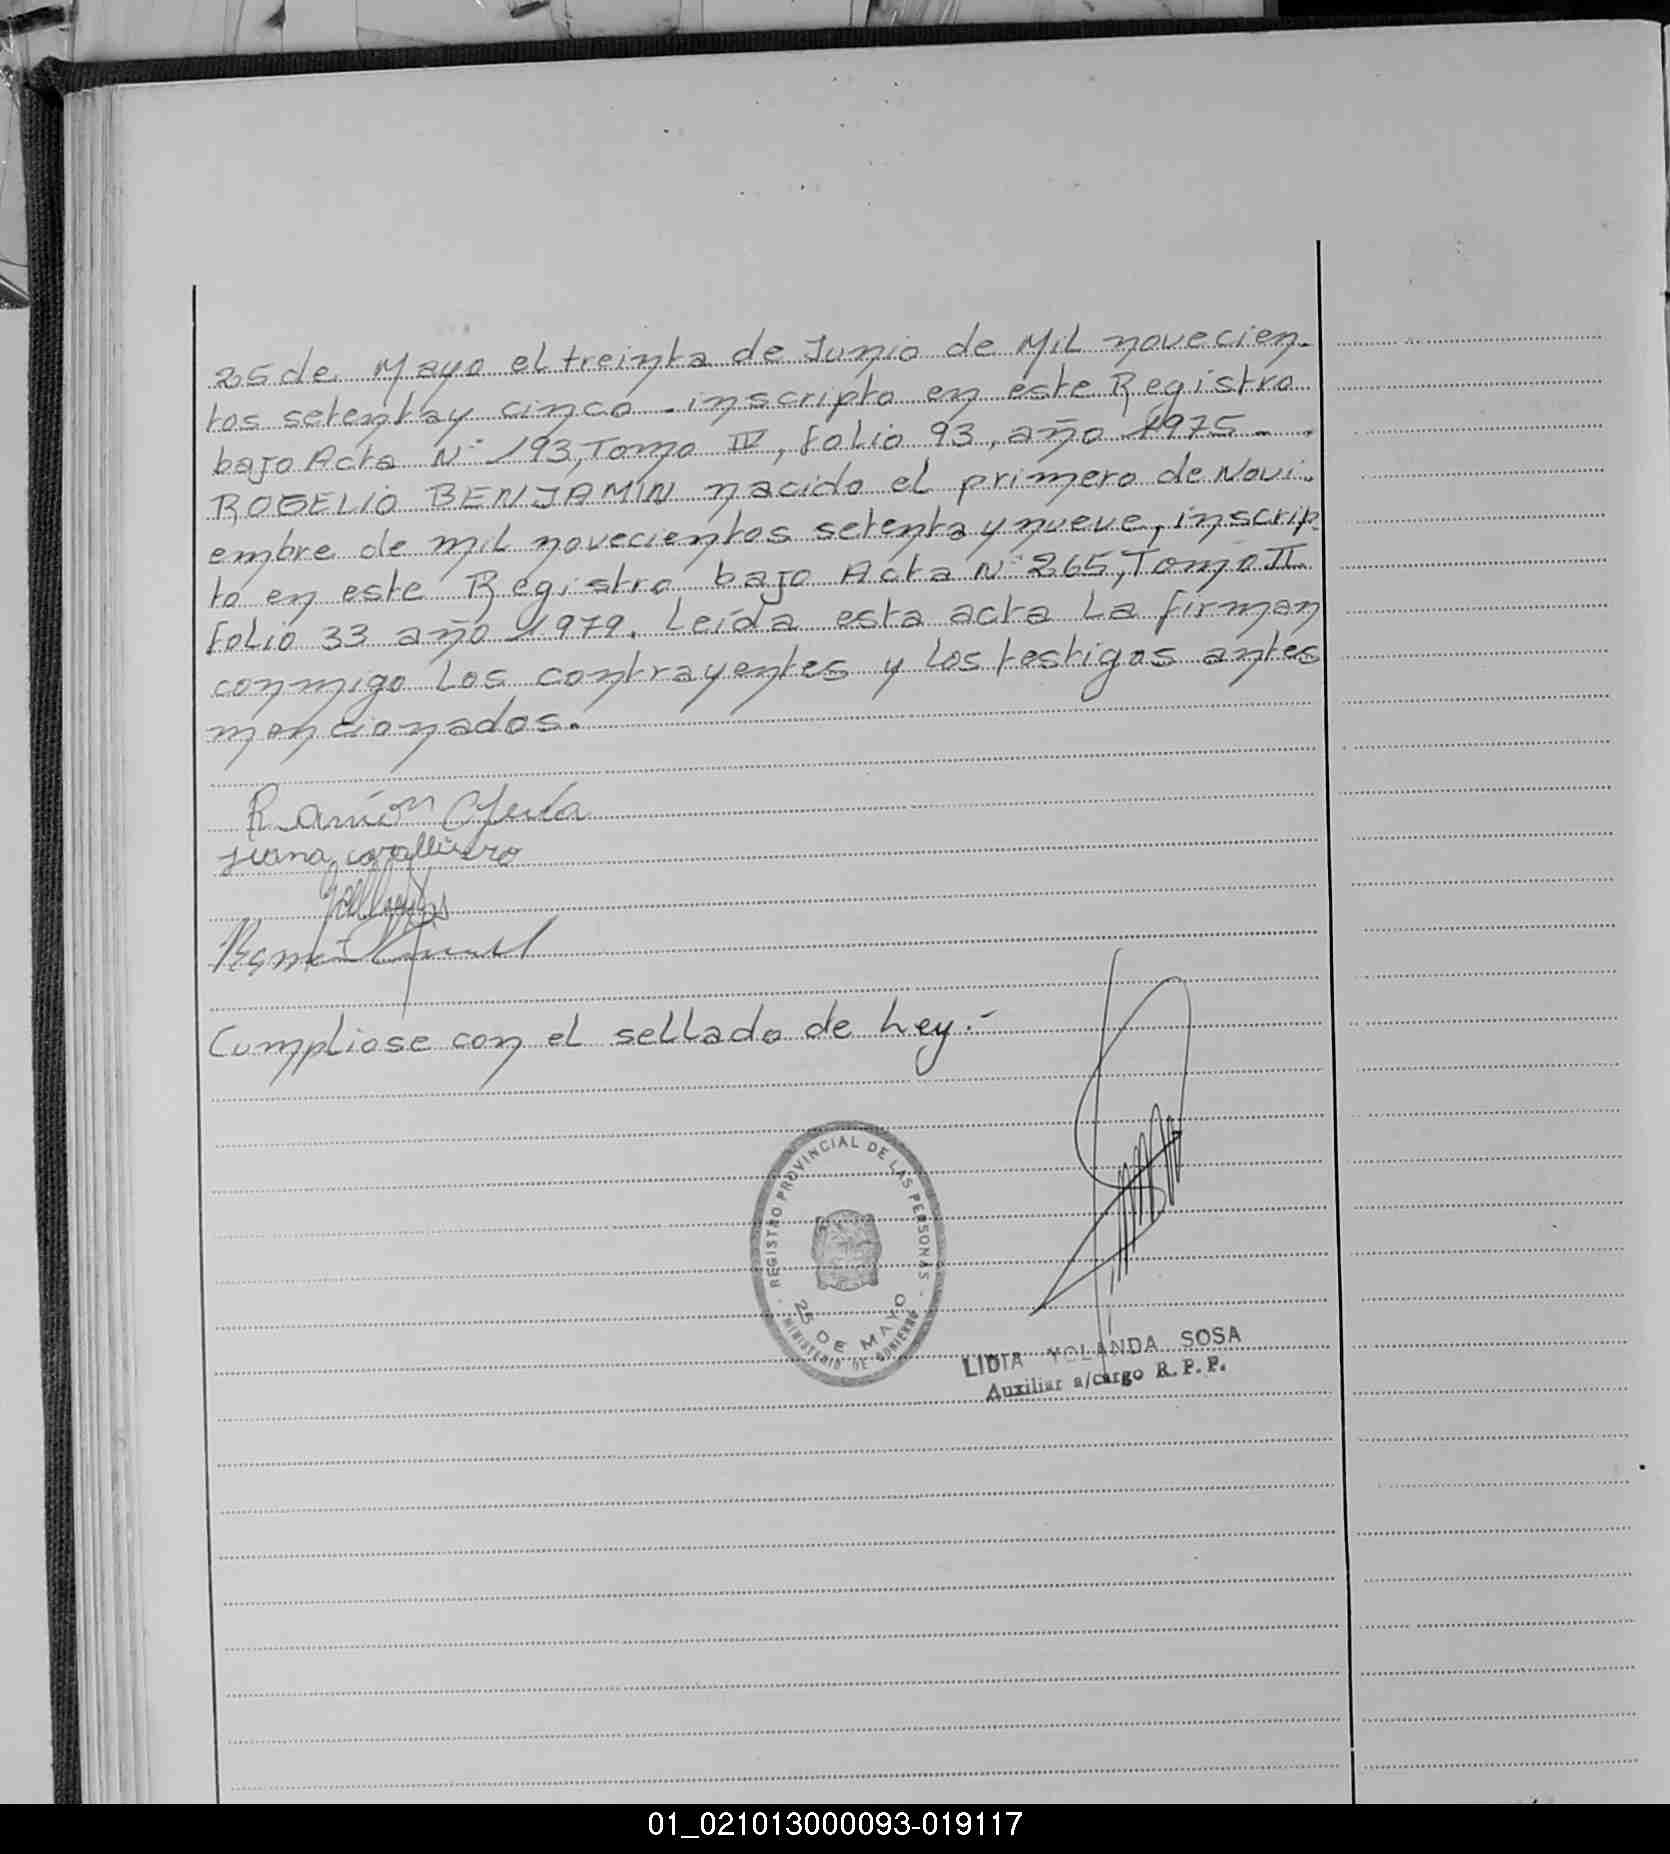 25 de Mayo el treinta de Junio de Mil novecien-
tos setenta y cinco - inscripto en este Registro
bajo Acta Nº 193, Tomo IV, folio 93, año 1975 - -
ROGELIO BENJAMIN nacido el primero de Novi-
embre de mil novecientos setenta y nueve, inscrip-
to en este Registro bajo Acta Nº 265, Tomo II
folio 33 año 1979. Leída esta acta La firman
conmigo Los contrayentes y Los testigos antes
mencionados.
Ramón
Juana
Cumpliose con el sellado de Ley.-
REGISTRO PROVINCIAL DE LAS PERSONAS
25 DE MAYO
MINISTERIO DE GOBIERNO
LIDIA YOLANDA SOSA
Auxiliar a/cargo R. P. P.
01_021013000093-019117